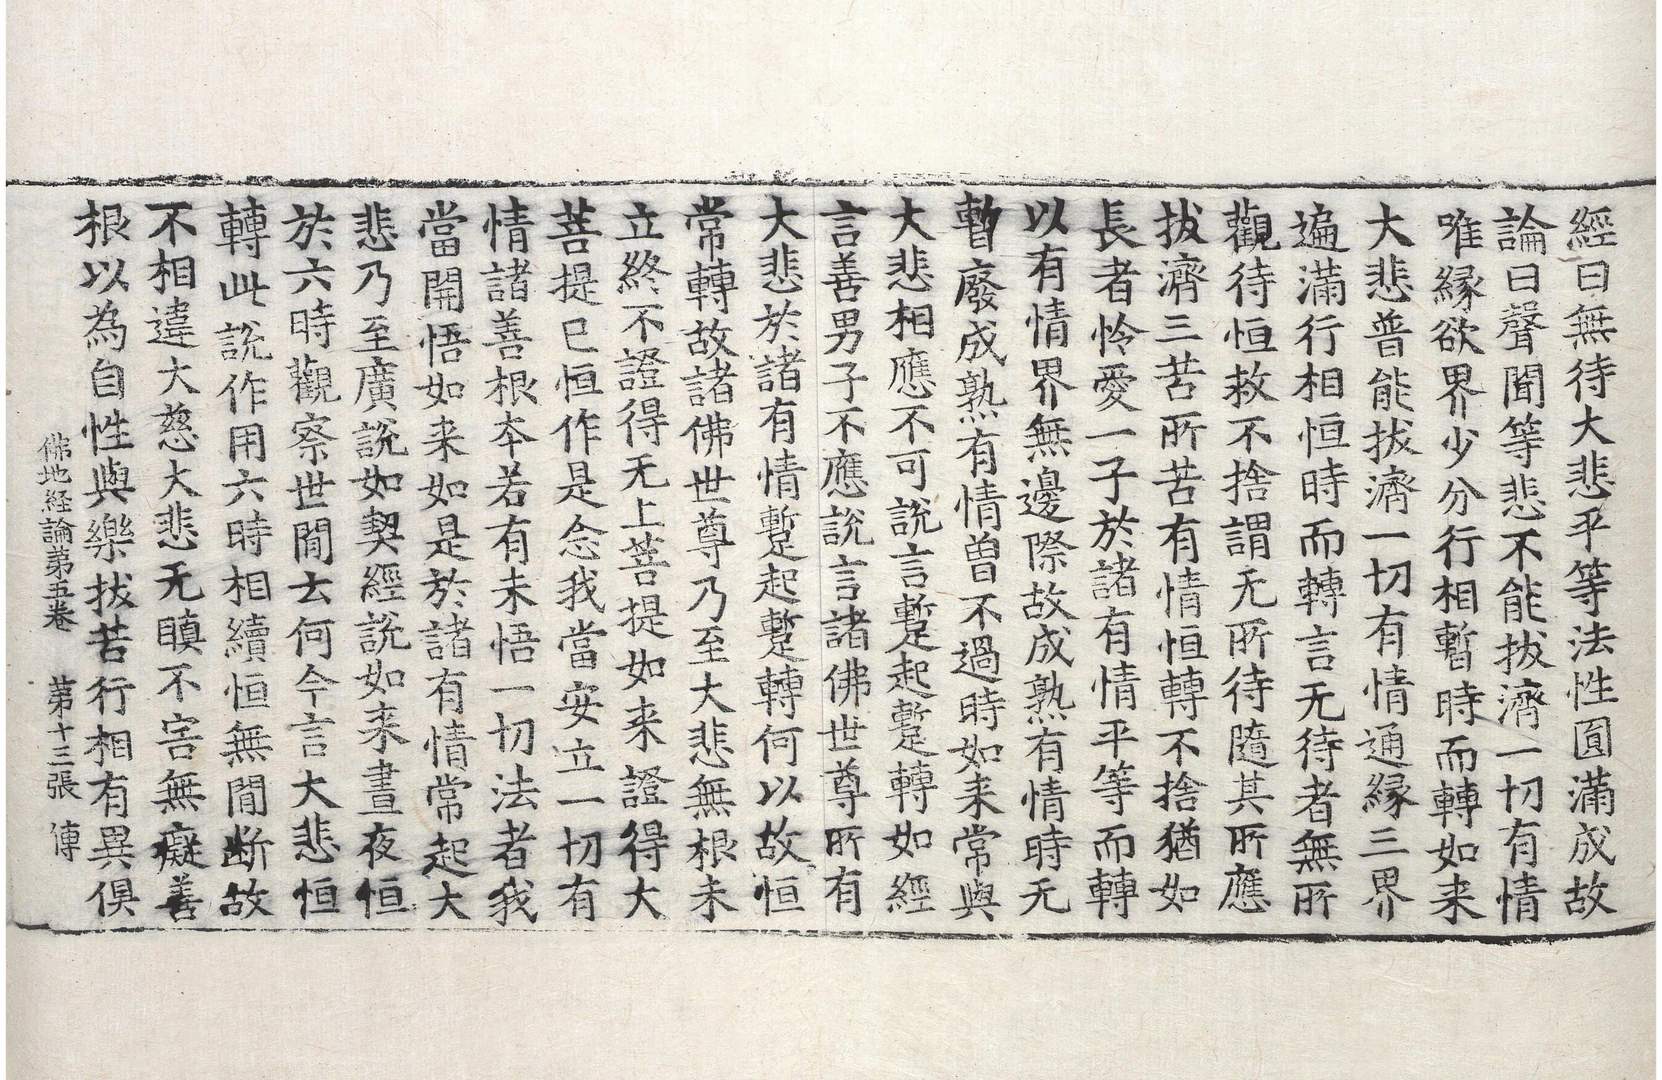 經曰無待大悲平等法性圓滿成故
論曰聲聞等悲不能拔濟一切有情
唯緣欲界少分行相暫時而轉如来
大悲普能拔濟一切有情通緣三界
遍滿行相恒時而轉言无待者無所
觀待恒救不捨謂无所待隨其所應
拔濟三苦所苦有情恒轉不捨猶如
長者怜愛一子於諸有情平等而轉
以有情界無邊際故成熟有情時无
暫廢成熟有情曾不過時如来常與
大悲相應不可說言蹔起蹔轉如經
言善男子不應說言諸佛世尊所有
大悲於諸有情蹔起蹔轉何以故恒
常轉故諸佛世尊乃至大悲無根未
立終不證得无上菩提如来證得大
菩提已恒作是念我當安立一切有
情諸善根夲若有未悟一切法者我
當開悟如来如是於諸有情常起大
悲乃至廣說如契經說如来晝夜恒
於六時觀察世間去何今言大悲恒
轉此說作用六時相續恒無間断故
不相違大慈大悲无瞋不害無癡善
根以為自性與樂拔苦行相有異俱
佛地経論第五卷 第十三張 傳